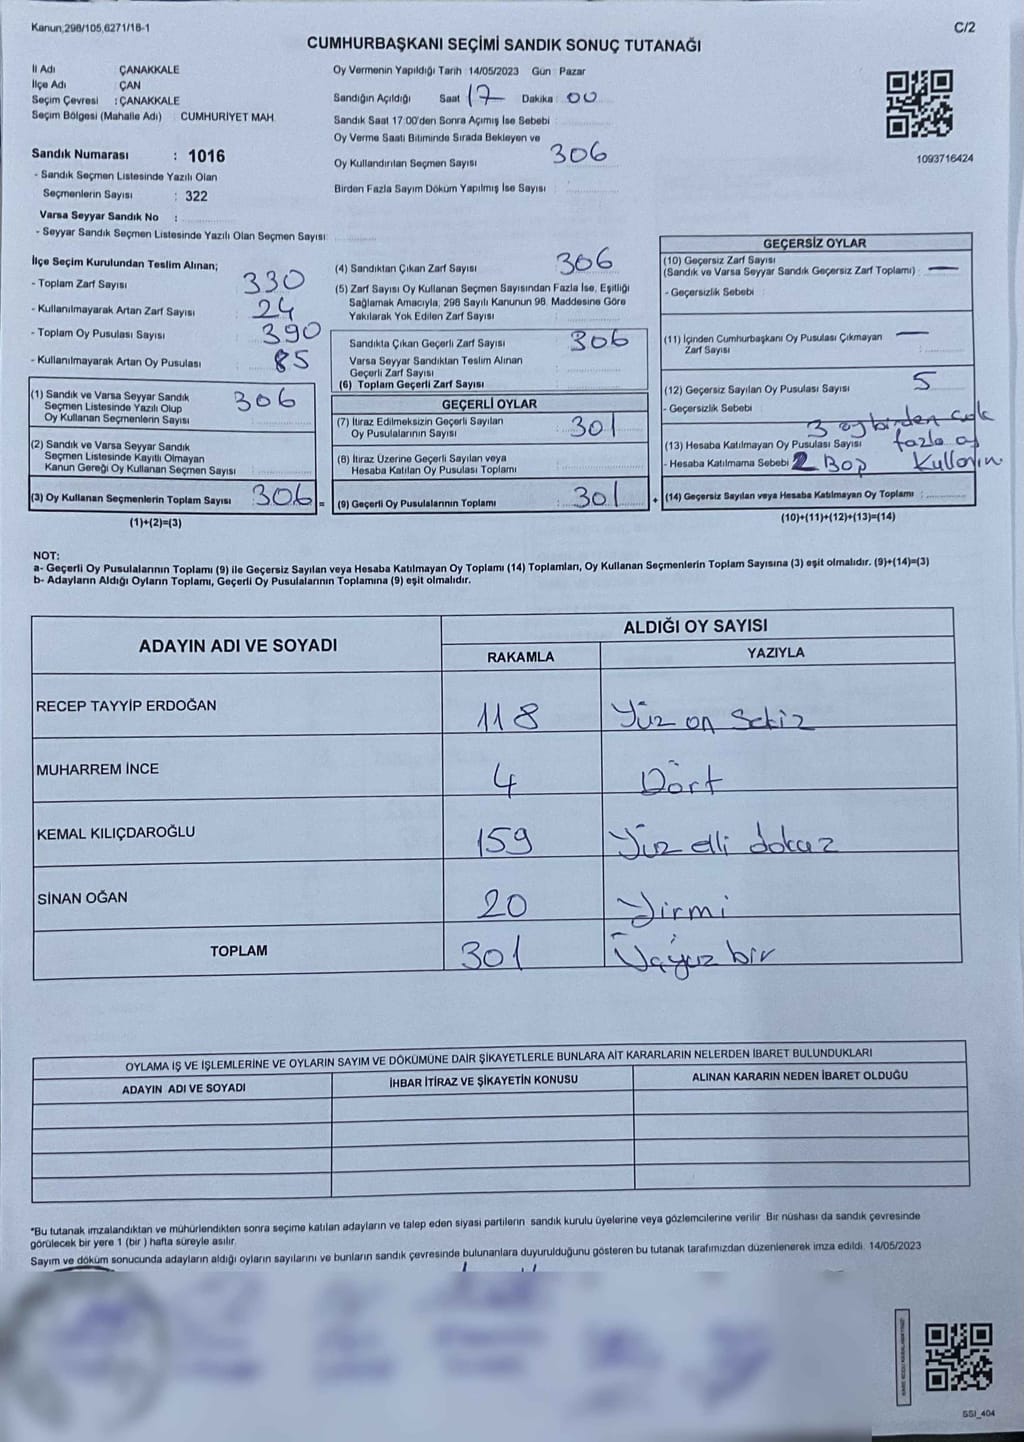 Kanun,298/105,6271/18-1
C/2
CUMHURBAŞKANI SEÇİMİ SANDIK SONUÇ TUTANAĞI
İl Adı ÇANAKKALE
İlçe Adı ÇAN
Seçim Çevresi : ÇANAKKALE
Seçim Bölgesi (Mahalle Adı) CUMHURİYET MAH.
Sandık Numarası : 1016
- Sandık Seçmen Listesinde Yazılı Olan
Seçmenlerin Sayısı : 322
Varsa Seyyar Sandık No :
- Seyyar Sandık Seçmen Listesinde Yazılı Olan Seçmen Sayısı
Oy Vermenin Yapıldığı Tarih 14/05/2023 Gün Pazar
Sandığın Açıldığı Saat 17 Dakika 00
Sandık Saat 17:00'den Sonra Açımış İse Sebebi
Oy Verme Saati Bitiminde Sırada Bekleyen ve
Oy Kullandırılan Seçmen Sayısı 306
Birden Fazla Sayım Döküm Yapılmış İse Sayısı
1093716424
İlçe Seçim Kurulundan Teslim Alınan;
- Toplam Zarf Sayısı 330
- Kullanılmayarak Artan Zarf Sayısı 24
- Toplam Oy Pusulası Sayısı 390
- Kullanılmayarak Artan Oy Pusulası 85
(1) Sandık ve Varsa Seyyar Sandık
Seçmen Listesinde Yazılı Olup
Oy Kullanan Seçmenlerin Sayısı 306
(2) Sandık ve Varsa Seyyar Sandık
Seçmen Listesinde Kayıtlı Olmayan
Kanun Gereği Oy Kullanan Seçmen Sayısı
(3) Oy Kullanan Seçmenlerin Toplam Sayısı 306 =
(1)+(2)=(3)
(4) Sandıktan Çıkan Zarf Sayısı 306
(5) Zarf Sayısı Oy Kullanan Seçmen Sayısından Fazla İse, Eşitliği
Sağlamak Amacıyla, 298 Sayılı Kanunun 98. Maddesine Göre
Yakılarak Yok Edilen Zarf Sayısı
Sandıkta Çıkan Geçerli Zarf Sayısı 306
Varsa Seyyar Sandıktan Teslim Alınan
Geçerli Zarf Sayısı
(6) Toplam Geçerli Zarf Sayısı
GEÇERLİ OYLAR
(7) İtiraz Edilmeksizin Geçerli Sayılan
Oy Pusulalarının Sayısı 301
(8) İtiraz Üzerine Geçerli Sayılan veya
Hesaba Katılan Oy Pusulası Toplamı
(9) Geçerli Oy Pusulalarının Toplamı 301 +
GEÇERSİZ OYLAR
(10) Geçersiz Zarf Sayısı
(Sandık ve Varsa Seyyar Sandık Geçersiz Zarf Toplamı) : —
- Geçersizlik Sebebi :
(11) İçinden Cumhurbaşkanı Oy Pusulası Çıkmayan —
Zarf Sayısı
(12) Geçersiz Sayılan Oy Pusulası Sayısı 5
- Geçersizlik Sebebi
3 oy birden çok
(13) Hesaba Katılmayan Oy Pusulası Sayısı fazla oy
- Hesaba Katılmama Sebebi 2 Boş Kullanın
(14) Geçersiz Sayılan veya Hesaba Katılmayan Oy Toplamı :
(10)+(11)+(12)+(13)=(14)
NOT:
a- Geçerli Oy Pusulalarının Toplamı (9) ile Geçersiz Sayılan veya Hesaba Katılmayan Oy Toplamı (14) Toplamları, Oy Kullanan Seçmenlerin Toplam Sayısına (3) eşit olmalıdır. (9)+(14)=(3)
b- Adayların Aldığı Oyların Toplamı, Geçerli Oy Pusulalarının Toplamına (9) eşit olmalıdır.
ADAYIN ADI VE SOYADI
ALDIĞI OY SAYISI
RAKAMLA YAZIYLA
RECEP TAYYİP ERDOĞAN 118 Yüz on Sekiz
MUHARREM İNCE 4 Dört
KEMAL KILIÇDAROĞLU 159 Yüz elli dokuz
SİNAN OĞAN 20 Yirmi
TOPLAM 301 Üçyüz bir
OYLAMA İŞ VE İŞLEMLERİNE VE OYLARIN SAYIM VE DÖKÜMÜNE DAİR ŞİKAYETLERLE BUNLARA AİT KARARLARIN NELERDEN İBARET BULUNDUKLARI
ADAYIN ADI VE SOYADI İHBAR İTİRAZ VE ŞİKAYETİN KONUSU ALINAN KARARIN NEDEN İBARET OLDUĞU
*Bu tutanak imzalandıktan ve mühürlendikten sonra seçime katılan adayların ve talep eden siyasi partilerin sandık kurulu üyelerine veya gözlemcilerine verilir Bir nüshası da sandık çevresinde
görülecek bir yere 1 (bir ) hafta süreyle asılır.
Sayım ve döküm sonucunda adayların aldığı oyların sayılarını ve bunların sandık çevresinde bulunanlara duyurulduğunu gösteren bu tutanak tarafımızdan düzenlenerek imza edildi. 14/05/2023
SSI_404